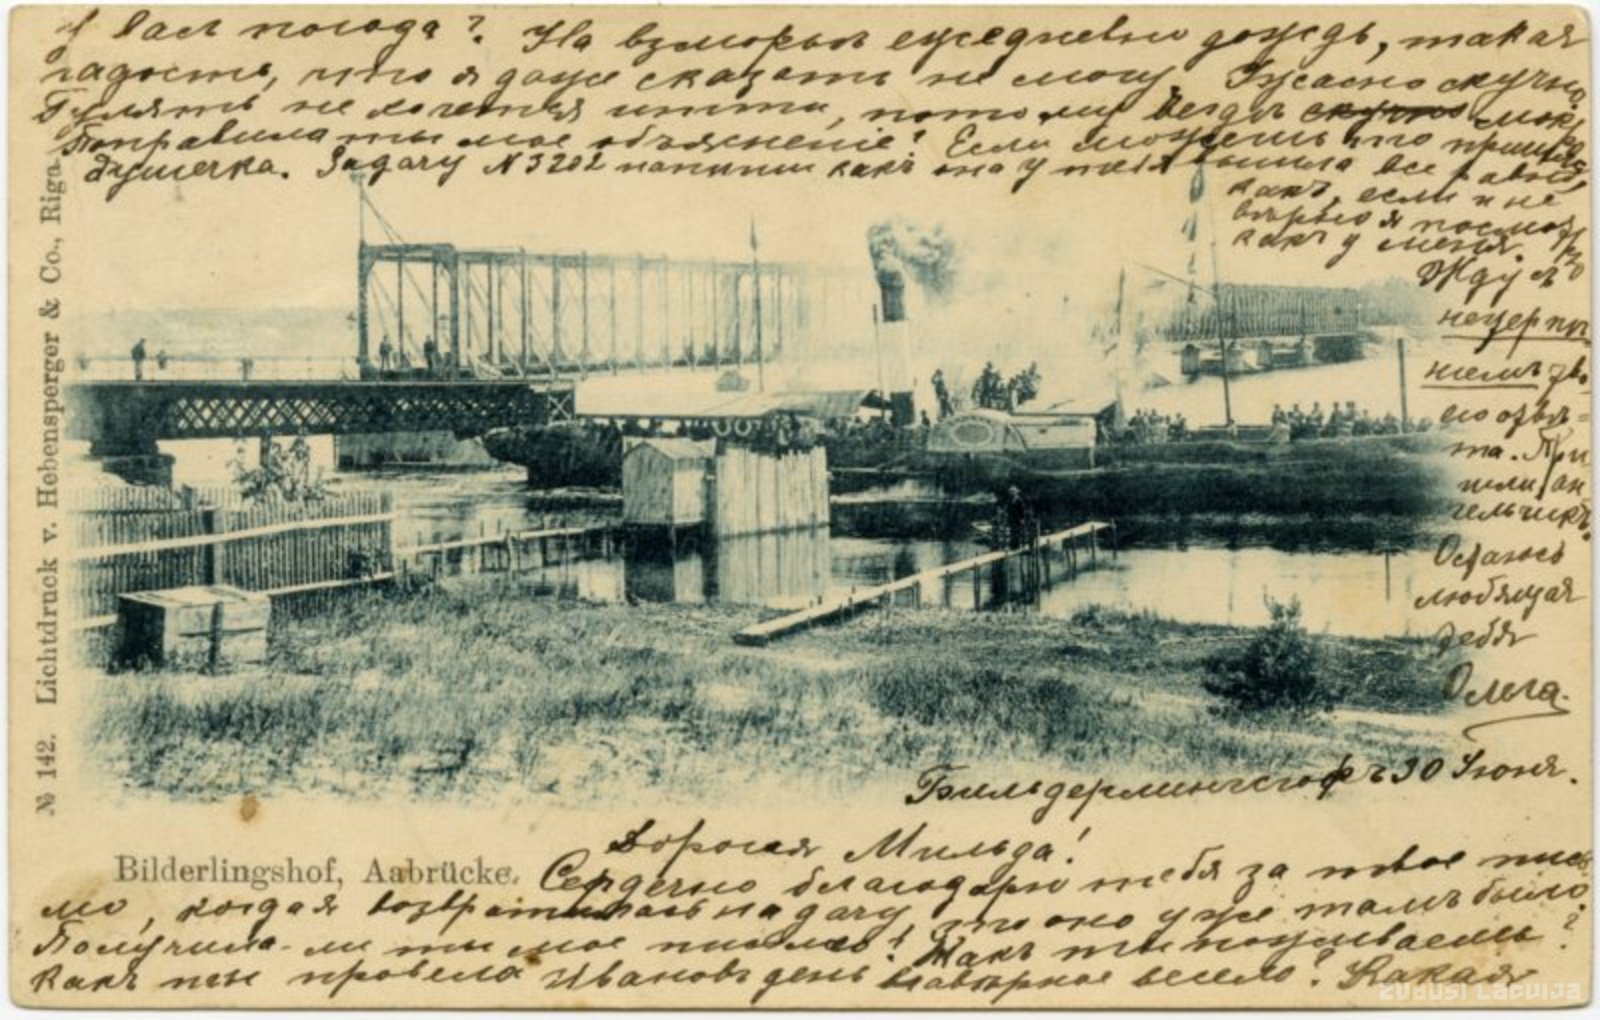 Бильдерлингсгофъ 30 Июня.
Дорогая Мильда!
Сердечно благодарю тебя за твое пись-
мо, когда я возвратилась на дачу, то оно уже тамъ было.
Получила-ли ты мое письмо? Какъ ты поживаешь?
Какъ ты провела Ивановъ день, навѣрное весело? Какая
у Васъ погода? На взморьѣ ежедневно дождь, такая
гадость, что я даже сказать не могу. Ужасно скучно.
Гулять не хочется итти, потому вездѣ скучно мокро
Поправила ты мое объясненіе? Если можешь то пришли,
душечка. Задачу N 3202 напиши какъ она у тебя вышла все равно
какъ, если и не
вѣрно я посмотрю
какъ у меня.
Жду съ
нетерпѣ-
ніемъ тво-
его отвѣ-
та. При
шли, ан-
гельчикъ.
Остаюсь
любящая
тебя
Олега.
Bilderlingshof, Aabrücke.
№ 142. Lichtdruck v. Hebensperger & Co., Riga.
ZUDUSI LATVIJA